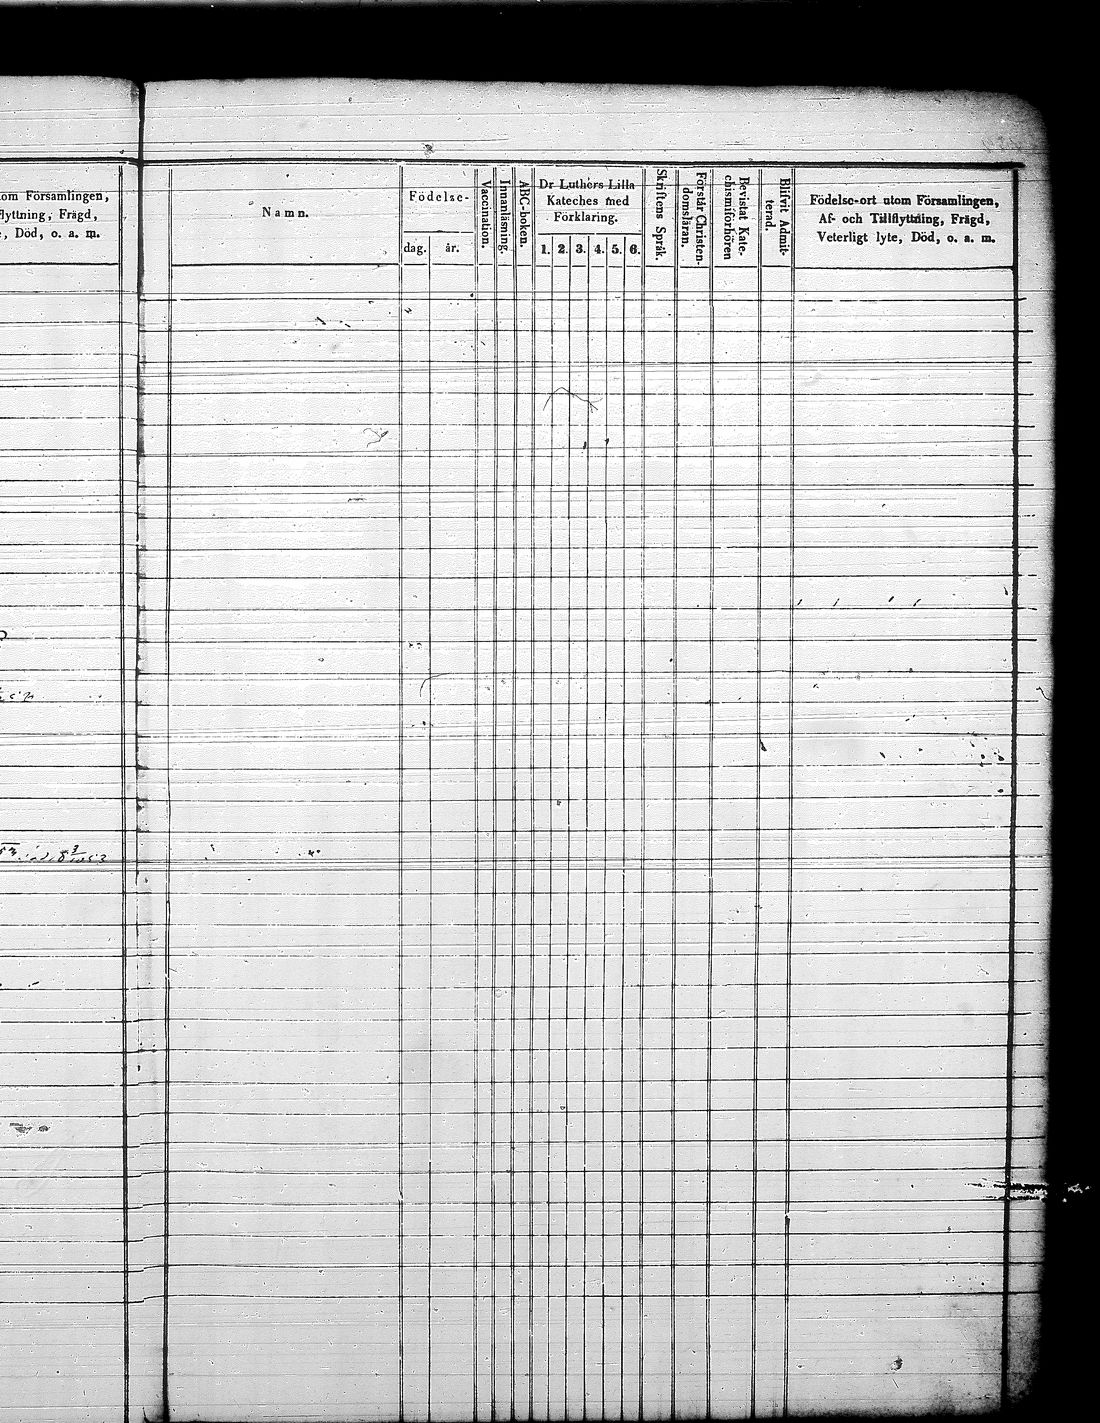 tom Församlingen,
flyttning, Frägd,
e, Död, o. a. m.
Namn.
Födelse-
dag.
år.
Vaccination.
Innanläsning.
ABC-boken.
Dr Luthers Lilla
Kateches med
Förklaring.
1. 2. 3. 4. 5. 6.
Skriftens Språk.
Förstår Christen-
domsläran.
Bevistat Kate-
chismiförhören
Blifvit Admit-
terad.
Födelse-ort utom Församlingen,
Af- och Tillflyttning, Frägd,
Veterligt lyte, Död, o. a. m.